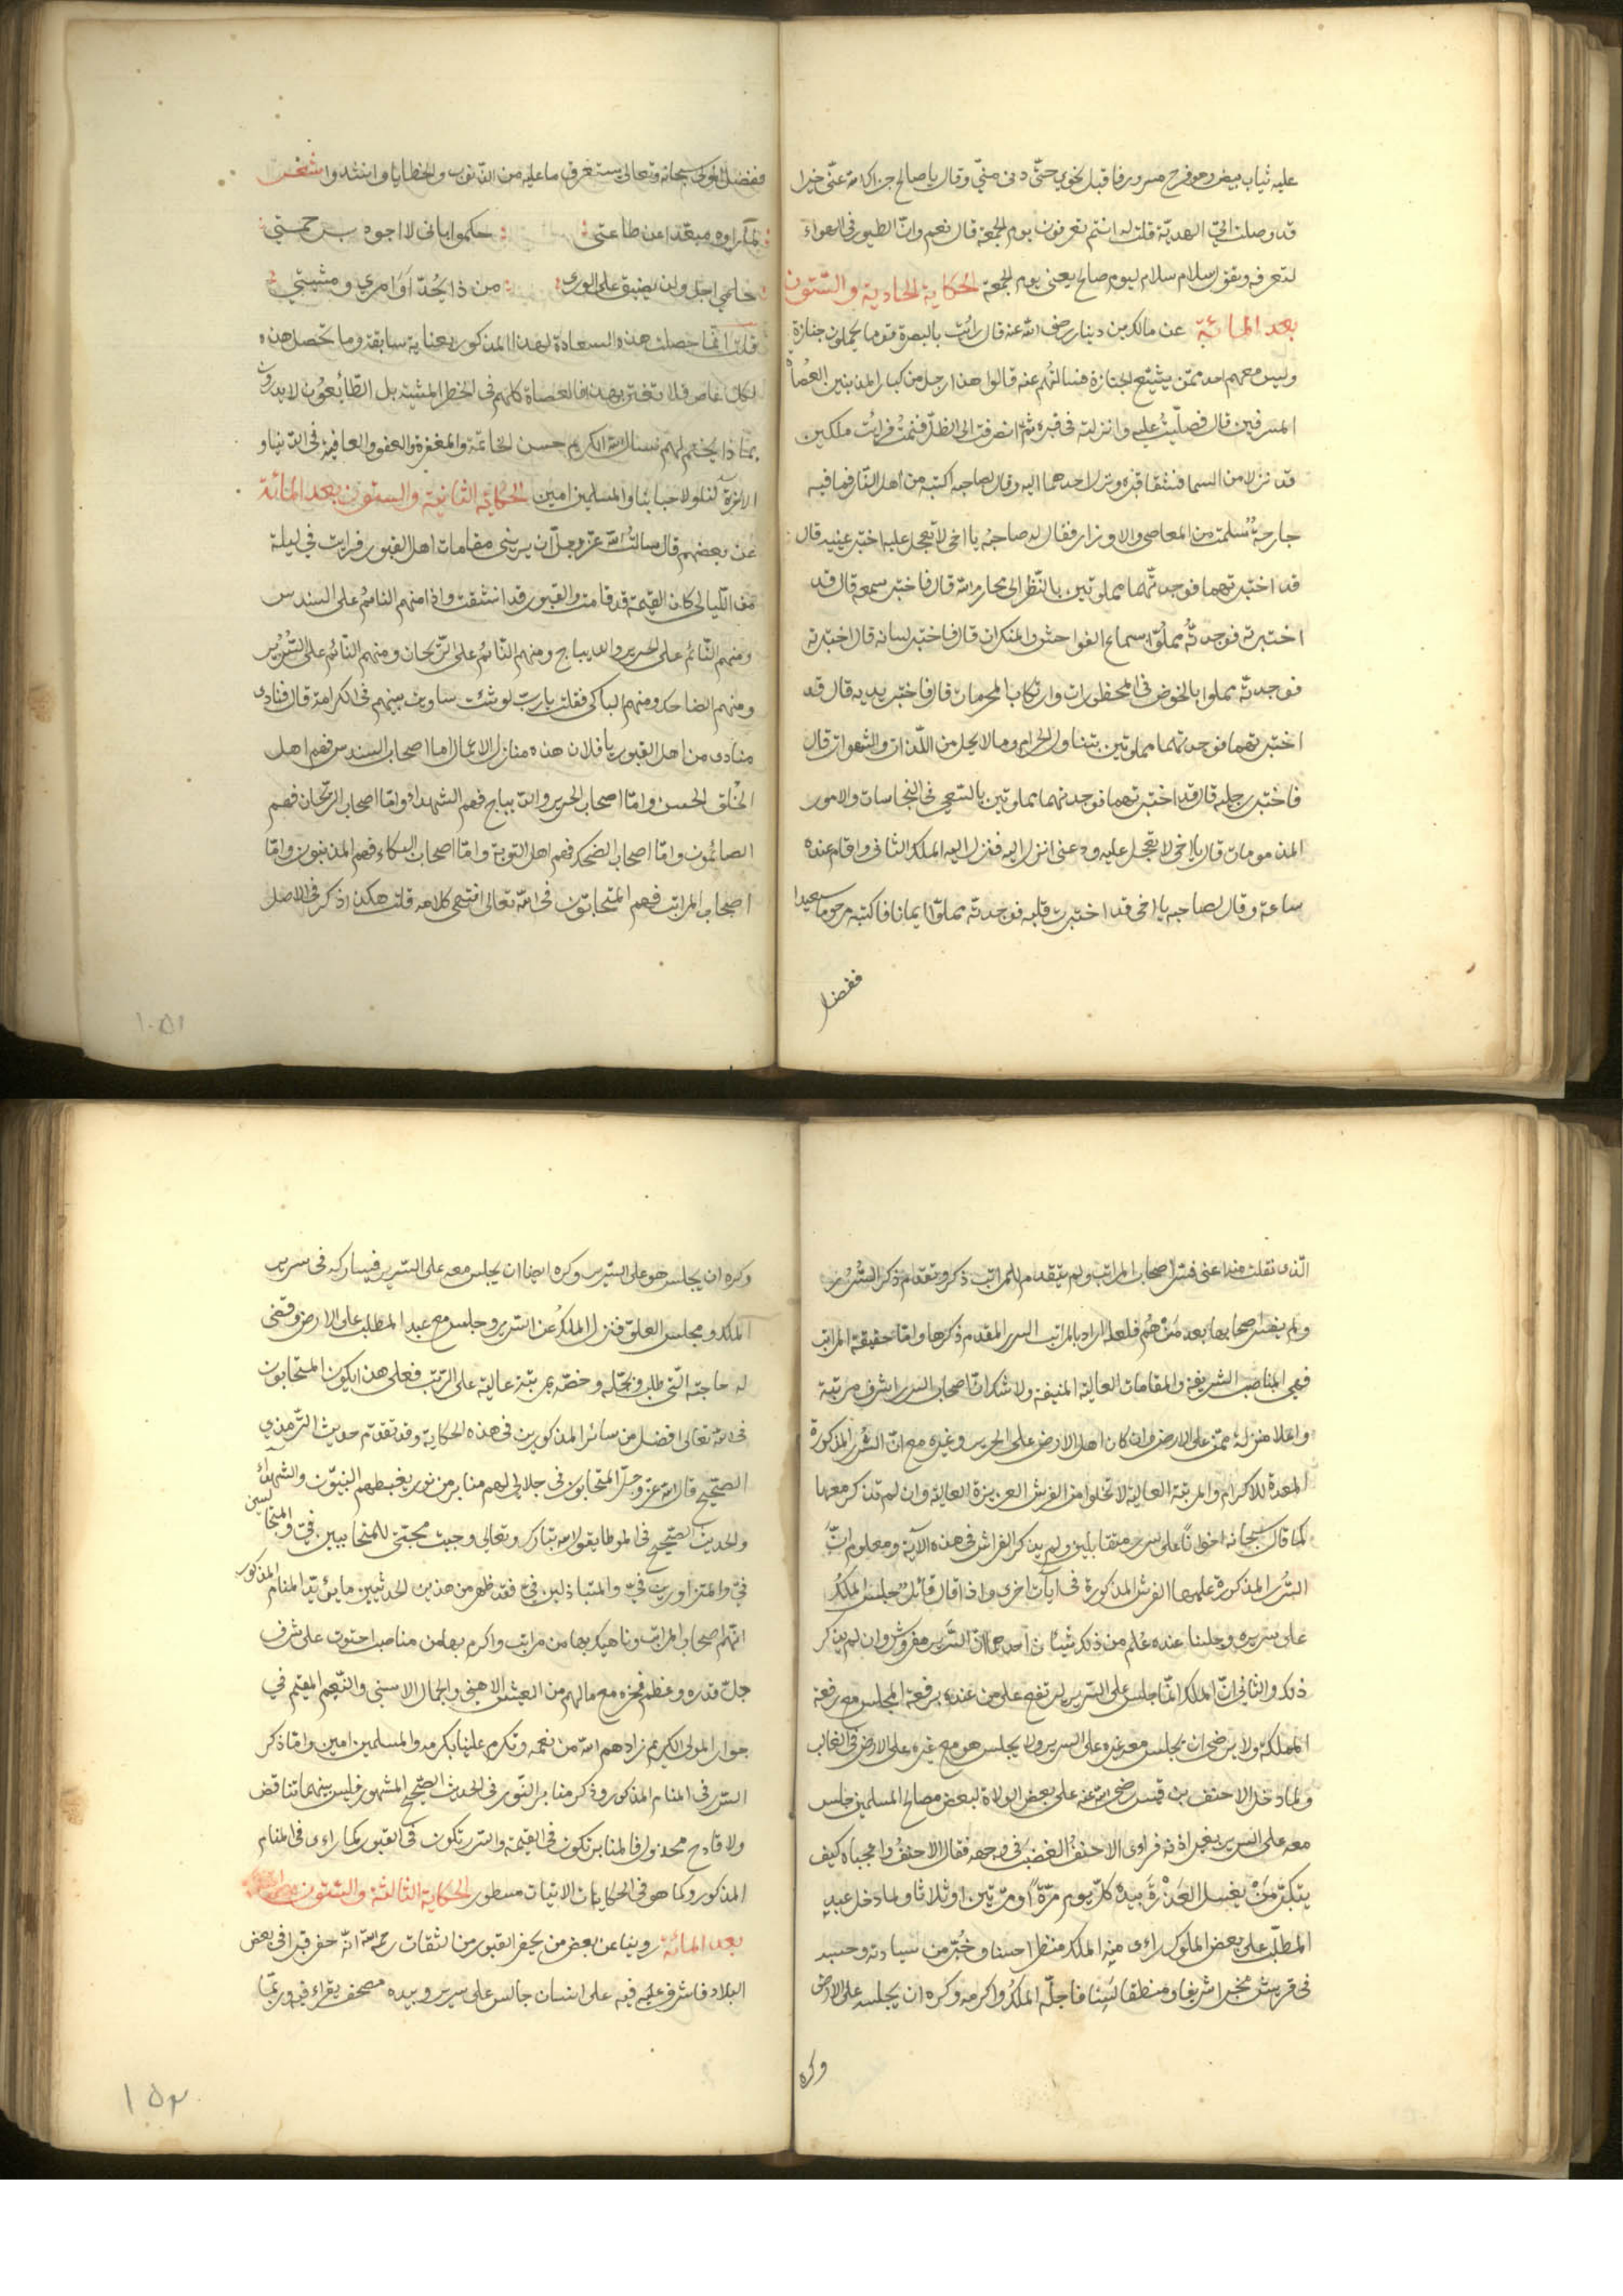 عليه ثياب بيض وهو فرح مسرور فاقبل نحوي حتّى دنى منّي وقال يا صالح جزاك الله عنّي خيرا
قد وصلت اليّ الهديّة قلت له انتم تعرفون يوم الجمعة قال نعم وانّ الطيور في الهواء
لتعرفه ويقول سلام سلام ليوم صالح يعنى يوم الجمعة الحكاية الحادية والستّون
بعد المائة عن مالك بن دينار رضى الله عنه قال رأيت بالبصرة قوما يحملون جنازة
وليس معهم احد ممّن يشيّع الجنازة فسالتهم عنه قالوا هذا رجل من كبار المذنبين العصاة
المسرفين قال فصلّيت عليه وانزلته في قبره ثمّ انصرفت الى الظلّ فنمت فرأيت ملكين
قد نزلا من السما فشقا قبره ونزل احدهما اليه وقال لصاحبه اكتبه من اهل النّار فما فيه
جارحة سلمت من المعاصي والاوزار فقال له صاحبه يا اخي لا تعجل عليه اختبر عينيه قال
قد اختبرتهما فوجدتهما مملوتين بالنّظر الى محارم الله قال فاختبر سمعه قال قد
اختبرته فوجدته مملوّا بسماع الفواحش والمنكرات قال فاختبر لسانه قال اختبرته
فوجدته مملوا بالخوض في المحظورات وارتكاب المحرمات قال فاختبر يديه قال قد
اختبرتهما فوجدتهما مملوتين بتناول الحرام وما لا يحل من اللّذات والشهوات قال
فاختبر رجليه قال قد اختبرتهما فوجدتهما مملوتين بالسّعي في النجاسات والامور
المذمومات قال يا اخي لا تعجل عليه ودعني انزل اليه فنزل اليه الملك الثاني واقام عنده
ساعة وقال لصاحبه يا اخي قد اختبرت قلبه فوجدته مملوّا ايمانا فاكتبه مرحوما سعيدا
ففضل
ففضل المولى سبحانه وتعالى يستغرق ما عليه من الذّنوب والخطايا وانشدوا شعر
لما راوه مبعّدا عن طاعتي حكموا بانى لا اجوه برحمتي
حلمي اجل ولن يضيق على الورى من ذا يحدّ اوامري ومشيتي
قلت انّما حصلت هذه السعادة لهذا المذكور بعناية سابقة وما تحصل هذه
لكل عاص فلا تغتر بهذا فالعصاة كلهم في الخطر المشيّة بل الطّائعون لا يدرون
بما ذا يختم لهم نسال الله الكريم حسن الخاتمة والمغفرة والعفو والعافية في الدّنيا و
الاخرة لنا ولاحبابنا والمسلمين امين الحكاية الثانية والستون بعد المائة
عن بعضهم قال سالت الله عزّ وجلّ ان يرينى مقامات اهل القبور فرايت في ليلة
من اللّيالى كان القيمة قد قامت والقبور قد انشقت واذا منهم النائم على السندس
ومنهم النّائم على الحرير والديباج ومنهم النّائم على الرّيحان ومنهم النّائم على السّرير
ومنهم الضاحك ومنهم الباكى فقلت يا ربّ لو شئت ساويت بينهم في الكرامة قال فنادى
منادى من اهل القبور يا فلان هذه منازل الاعمال اما اصحاب السندس فهم اهل
الخلق الحسن وامّا اصحاب الحرير والدّيباج فهم الشهداء وامّا اصحاب الرّيحان فهم
الصائمون وامّا اصحاب الضحك فهم اهل التوبة وامّا اصحاب البكاء فهم المذنبون وامّا
اصحاب المراتب فهم المتحابّون في الله تعالى انتهى كلامه قلت هكذا ذكر في الاصل
١٥١
الّذى نقلت منه اعنى فسّر اصحاب المراتب ولم يتقدم للمراتب ذكر وتقدّم ذكر السّرر
ولم يفسر اصحابها بعد من هم فلعله اراد بالمراتب السرر المقدم ذكرها وامّا حقيقة المراتب
فهي المناصب الشريفة والمقامات العالية المنيفة ولا شكّ انّ اصحاب السرر اشرف مرتبة
واعلا منزلة ممّن على الارض وان كان اهل الارض على الحرير وغيره مع انّ السّرر المذكورة
المعدة للاكرام والمرتبة العالية لا تخلوا من الفرش العزيزة العالية وان لم تذكر معها
كما قال سبحانه اخوانا على سرر متقابلين ولم يذكر الفراش في هذه الآية ومعلوم انّ
السّرر المذكورة عليها الفرش المذكورة في آيات اخرى واذا قال قائل جلس الملك
على سريره وجلسنا عنده علم من ذلك شيئان احدهما انّ السّرير مفروش وان لم يذكر
ذلك والثاني انّ الملك لمّا جلس على السّرير ارتفع على من عنده برفعة المجلس مع رفعة
المملكة ولا يرضى ان يجلس معه غيره على السرير ولا يجلس هو مع غيره على الارض في الغالب
ولما دخل الاحنف بن قيس رضي الله عنه على بعض الولاة لبعض مصالح المسلمين جلس
معه على السرير بغير اذنه فراى الاحنف الغضب في وجهه فقال الاحنف واعجباه كيف
يتكبّر من يغسل العذرة بيده كلّ يوم مرّة او مرّتين او ثلاثا ولما دخل عبد
المطّلب على بعض الملوك راى منه الملك منظرا حسنا وخبّر من سيادته وحسبه
في قريش مخبرا شريفا ومنطقا لسنا فاجلّه الملك واكرمه وكره ان يجلسه على الارض
وكره
وكره ان يجلس هو على السّرير وكره ايضا ان يجلس معه على السّرير فيشاركه في سرير
الملك ومجلس العلوّ فنزل الملك عن السّرير وجلس مع عبد المطلب على الارض وقضى
له حاجته الّتى طلب وبجّله وخصّه بمرتبة عالية على الرّتب فعلى هذا يكون المتحابون
في الله تعالى افضل من سائر المذكورين في هذه الحكاية وقد تقدّم حديث التّرمذي
الصّحيح قال الله عزّ وجلّ المتحابون في جلالى لهم منابر من نور يغبطهم النبيّون والشهداء
والحديث الصّحيح في الموطا يقول الله تبارك وتعالى وجبت محبّتى للمتحابين فيّ والمتجالسين
فيّ والمتزاورين فيّ والمتباذلين فيّ فقد ظهر من هذين الحديثين ما يؤيّد المنام المذكور
انّهم اصحاب المراتب وناهيك بها من مراتب واكرم بها من مناصب احتوت على شرف
جلّ قدره وعظم فخره مع مالهم من العيش الاهنى والجمال الاسنى والنّعيم المقيم في
جوار المولى الكريم زادهم الله من نعمه وتكرم علينا بكرمه والمسلمين امين وامّا ذكر
السّرر في المنام المذكور وذكر منابر النّور في الحديث الصّحيح المشهور فليس بينهما تناقض
ولا قادح محذور فالمنابر تكون في القيمة والسّرر تكون في القبور كما راءى في المنام
المذكور وكما هو في الحكايات الاتيات مسطور الحكاية الثالثة والستّون
بعد المائة روينا عن بعض من يحفر القبور من الثقات رحمه الله انّه حفر قبرا في بعض
البلاد فاشرف عليه فيه على انسان جالس على سرير وبيده مصحف يقراء فيه وربّما
١٥٢